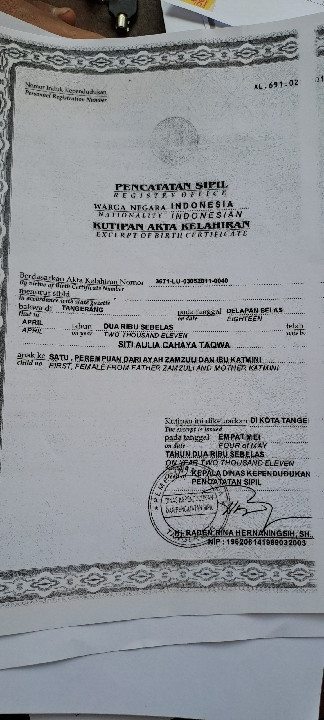 Nomor Induk Kependudukan
Personnel Registration Number
AL.691.02
PENCATATAN SIPIL
REGISTRY OFFICE
WARGA NEGARA INDONESIA
NATIONALITY INDONESIAN
KUTIPAN AKTA KELAHIRAN
EXCERPT OF BIRTH CERTIFICATE
Berdasarkan Akta Kelahiran Nomor 3671-LU-03052011-0040
By virtue of Birth Certificate Number
menurut stbld
in accordance with state gazette
bahwa di TANGERANG pada tanggal DELAPAN BELAS
that in on date EIGHTEEN
APRIL tahun DUA RIBU SEBELAS telah
APRIL on year TWO THOUSAND ELEVEN
SITI AULIA CAHAYA TAQWA
anak ke SATU, PEREMPUAN DARI AYAH ZAMZULI DAN IBU KATMINI
child no FIRST, FEMALE FROM FATHER ZAMZULI AND MOTHER KATMINI
Kutipan ini dikeluarkan DI KOTA TANGE
The excerpt is issued
pada tanggal EMPAT MEI
on date FOUR of MAY
TAHUN DUA RIBU SEBELAS
ON YEAR TWO THOUSAND ELEVEN
KEPALA DINAS KEPENDUDUKAN
PENCATATAN SIPIL
Hj. RADEN RINA HERNANINGSIH, SH.
NIP : 196206141986032003